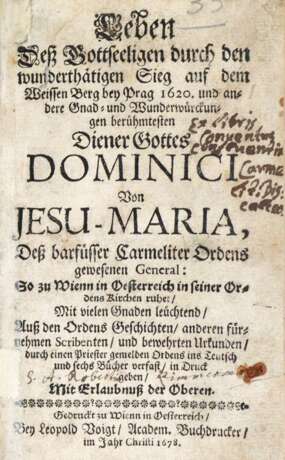 Leben
Deß Gottseeligen durch den
wunderthätigen Sieg auf dem
Weissen Berg bey Prag 1620. und an-
dere Gnad- und Wunderwürckun-
gen berühmtesten
Diener Gottes
DOMINICI
Von
JESU-MARIA,
Deß barfüsser Carmeliter Ordens
gewesenen General:
So zu Wienn in Oesterreich in seiner Or-
dens Kirchen ruhe/
Mit vielen Gnaden leüchtend/
Auß den Ordens Geschichten/ anderen für-
nehmen Scribenten/ und bewehrten Urkunden/
durch einen Priester gemelden Ordens ins Teutsch
und sechs Bücher verfast/ in Druck
geben/
Mit Erlaubnuß der Oberen.
Gedruckt zu Wienn in Oesterreich/
Bey Leopold Voigt/ Academ. Buchdrucker/
im Jahr Christi 1678.
Ex libris
Conventus